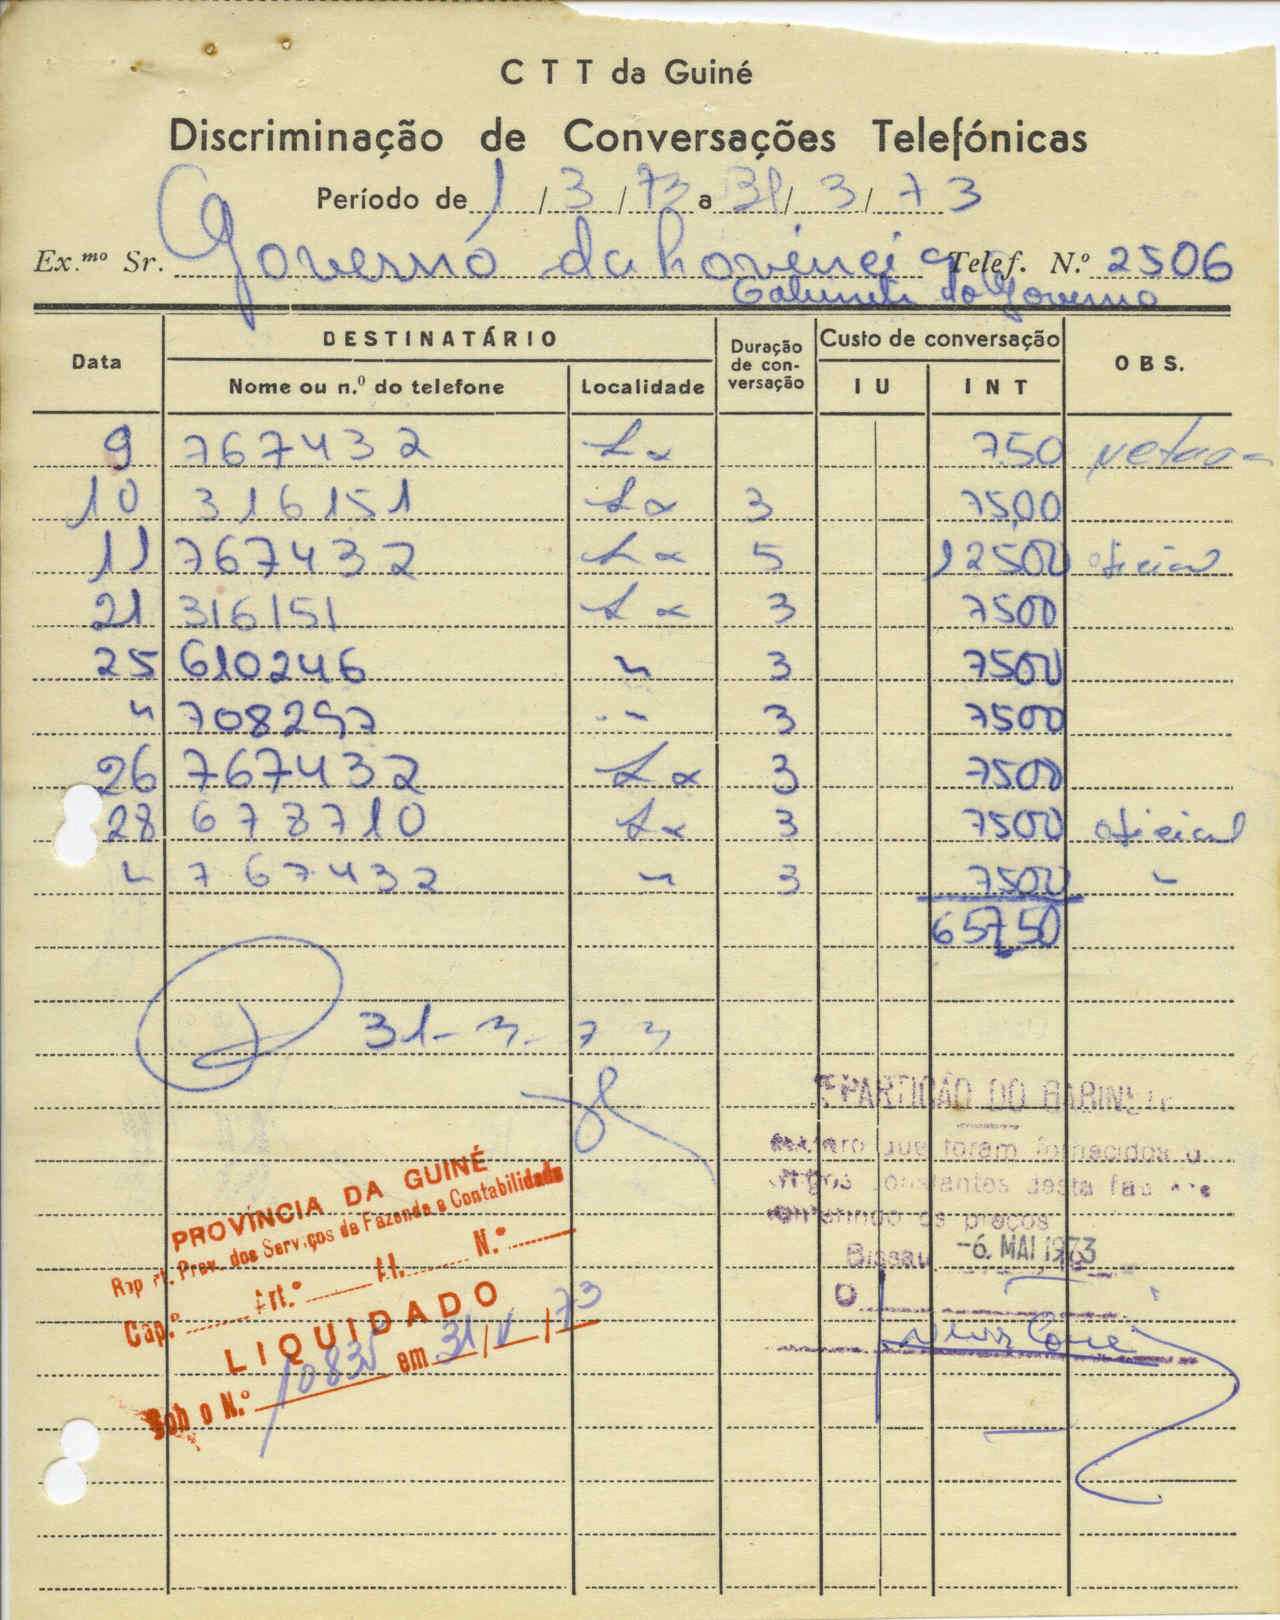 C T T da Guiné
Discriminação de Conversações Telefónicas
Período de 1/3/73 a 31/3/73
Ex.mo Sr. Governo da Provincia Telef. N.º 2506
Gabinete do Governo
Data DESTINATÁRIO Duração de con-versação Custo de conversação OBS.
Nome ou n.º do telefone Localidade IU INT
9 767432 Lx 7.50
10 316151 Lx 3 75,00
11 767432 Lx 5 12500 oficial
21 316151 Lx 3 7500
25 610246 " 3 7500
" 708297 " 3 7500
26 767432 Lx 3 7500
28 678710 Lx 3 7500 oficial
" 767432 " 3 7500 "
657,50
31-3-73
PARTIÇÃO DO GABINETE
que foram fornecidos
constantes desta
os preços
Bissau, -6. MAI 1973
O
PROVÍNCIA DA GUINÉ
Rep rt. Prov. dos Serviços de Fazenda e Contabilidade
Cap.º Art.º N.º
LIQUIDADO
Sob o N.º 10835 em 31/V/73